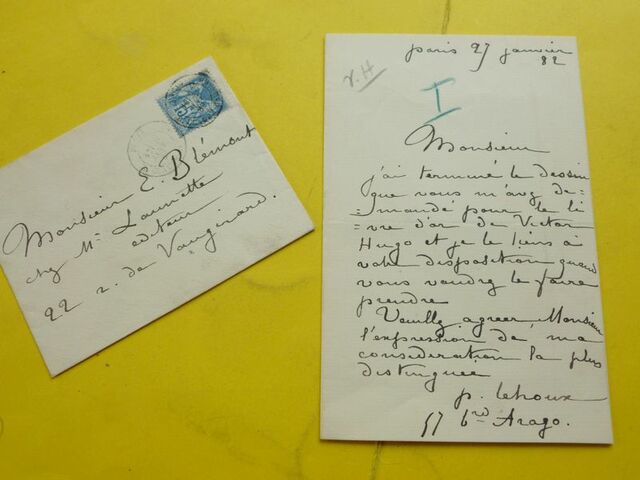 Monsieur E. Blémont
chez Mr Launette
editeur
22 r. de Vaugirard.
15
paris 27 janvier
82
V.H
I
Monsieur
j'ai terminé le dessin
que vous m'avez de=
=mandé pour le li
=vre d'or de Victor
Hugo et je le tiens à
votre disposition quand
vous voudrez le faire
prendre
Veuillez agreer, Monsieur
l'expression de ma
consideration la plus
distinguée
p. Lehoux
57 brd Arago.